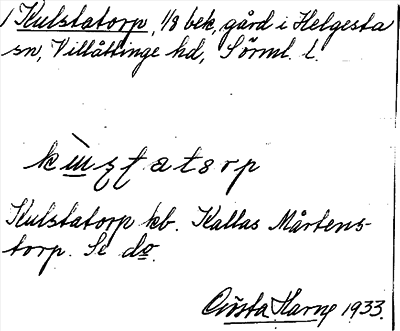 1 Kulstatorp, 1/8 bek, gård i Helgesta
sn, Villåttinge hd, Sörml. l.
Kulstatorp kb. Kallas Mårtens-
torp. Se do.
Gösta Harne 1933.